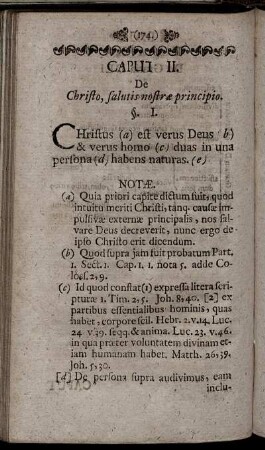 (174.)
CAPUT II.
De
Christo, salutis nostræ principio.
§. I.
CHristus (a) est verus Deus (b)
& verus homo (c) duas in una
persona (d) habens naturas. (e)
NOTÆ.
(a) Quia priori capite dictum fuit, quod
intuitu meriti Christi, tanq. causæ im-
pulsivæ externæ principalis, nos sal-
vare Deus decreverit, nunc ergo de
ipso Christo erit dicendum.
(b) Quod supra jam fuit probatum Part.
1. Sect. 1. Cap. 1. 1. nota 5. adde Co-
loss. 2, 9.
(c) Id quod constat (1) expressa litera scri-
pturæ 1. Tim. 2, 5. Joh. 8, 40. [2] ex
partibus essentialibus hominis, quas
habet, corpore scil. Hebr. 2. v. 14. Luc.
24 v. 39. seqq. & anima. Luc. 23. v. 46.
in qua præter voluntatem divinam et-
iam humanam habet. Matth. 26, 39.
Joh. 5, 30.
[d] De persona supra audivimus, eam
inclu-